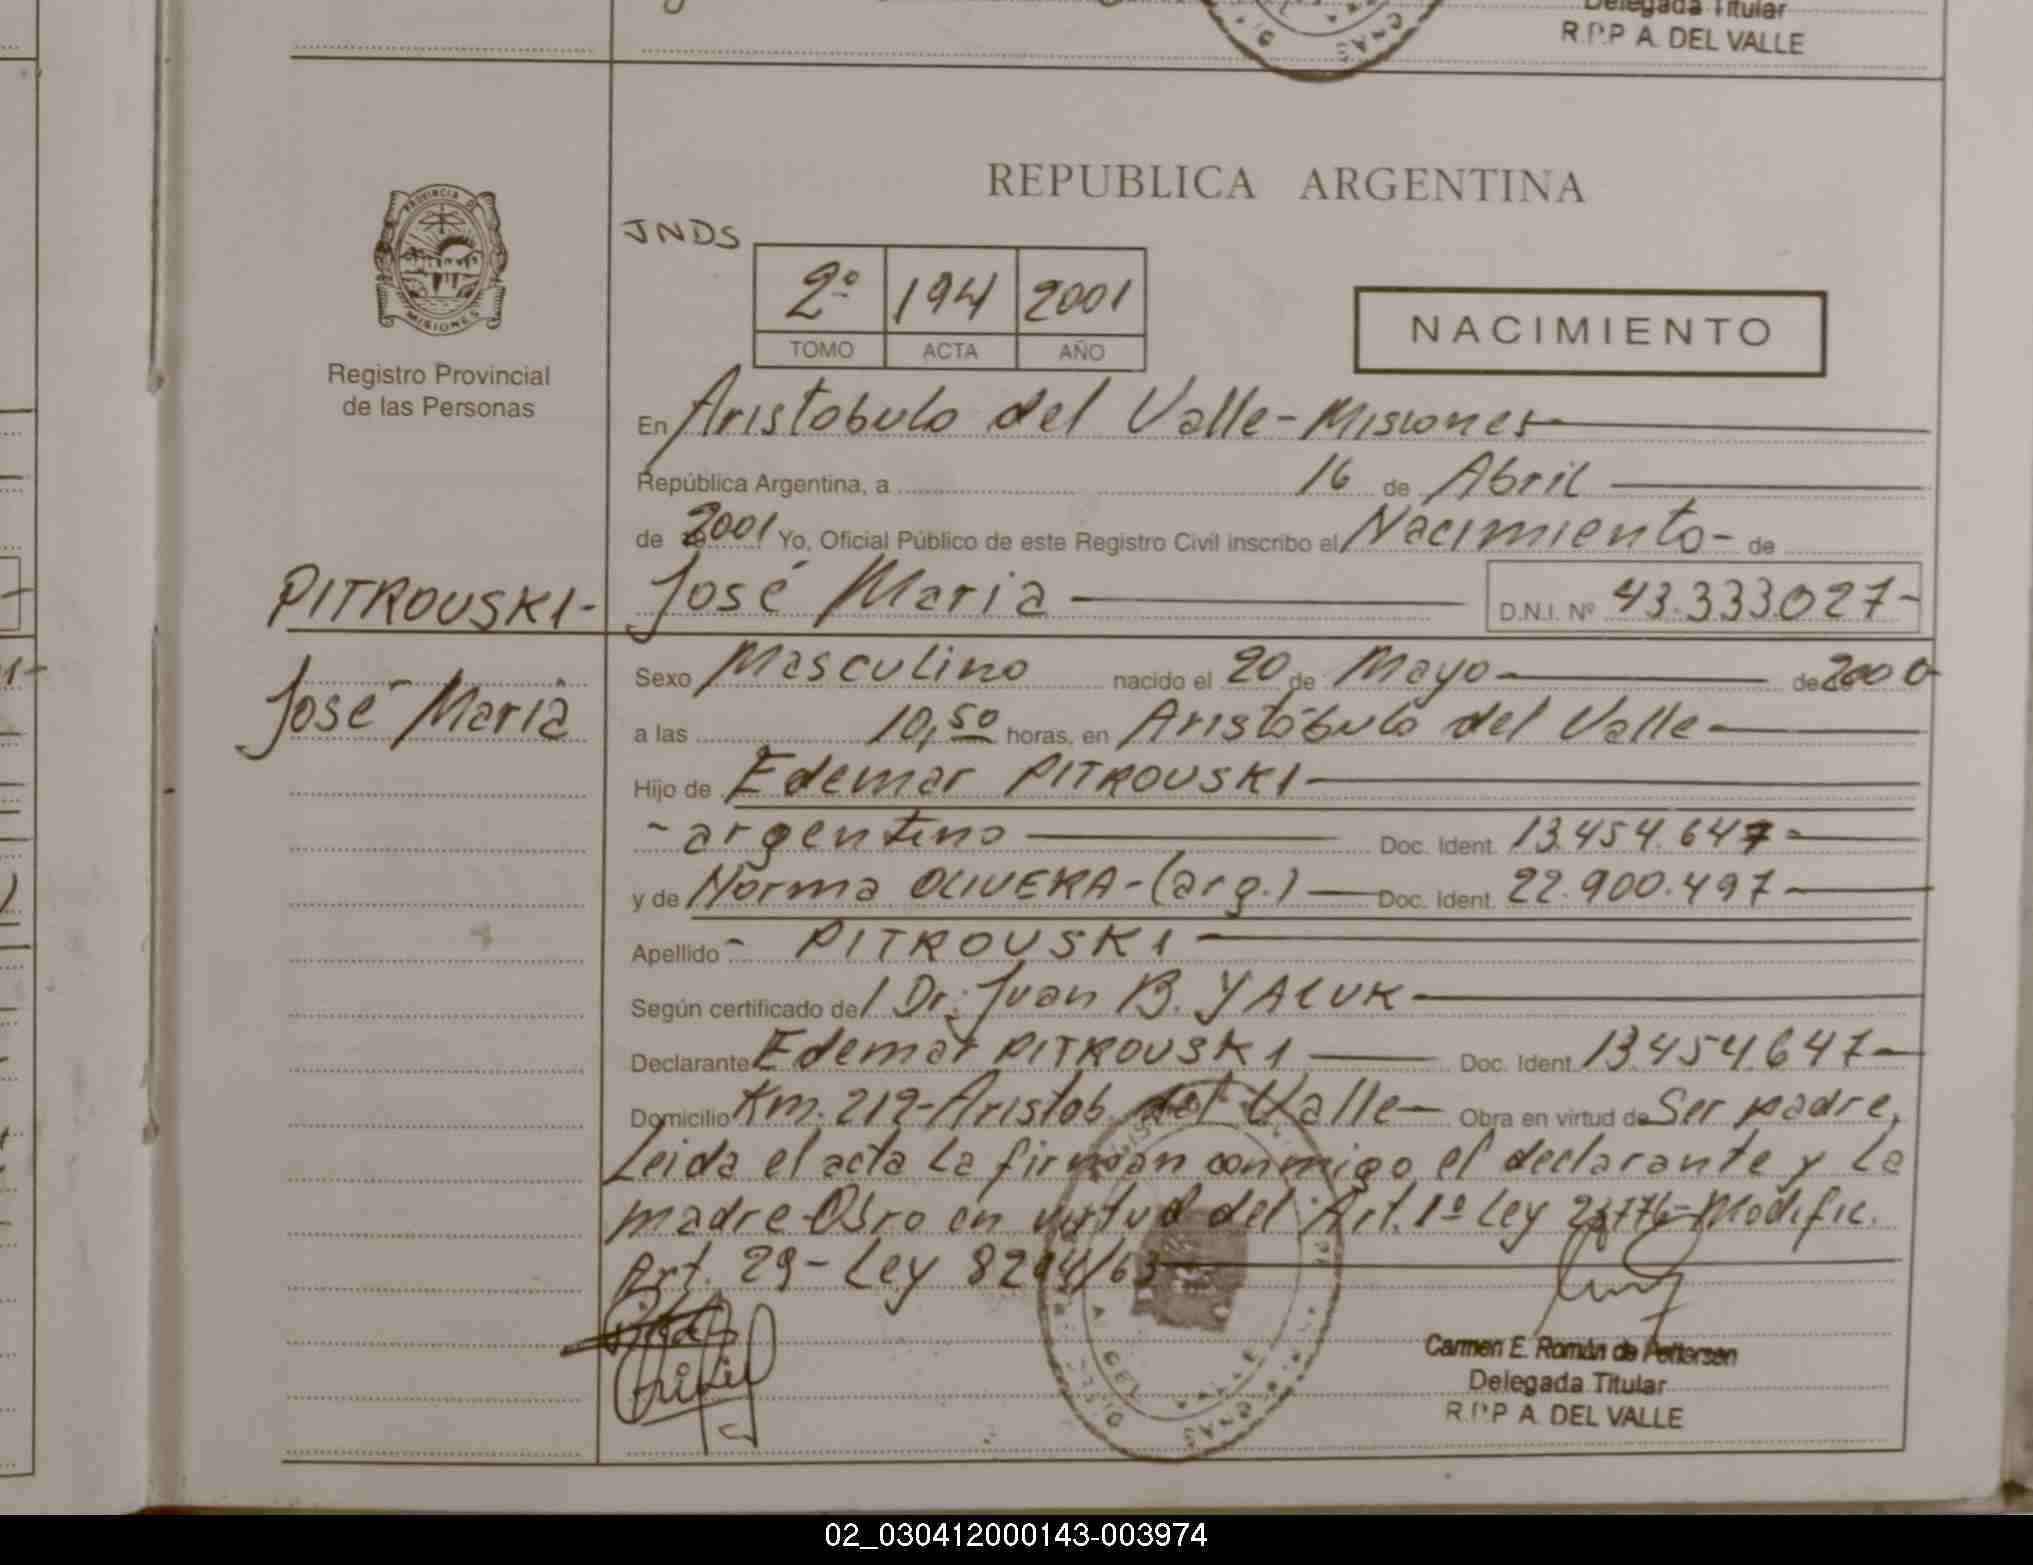 Delegada Titular
R.P.P A. DEL VALLE
PROVINCIA D
MISIONES
Registro Provincial
de las Personas
REPUBLICA ARGENTINA
JNDS
2º 194 2001
TOMO ACTA AÑO
NACIMIENTO
En Aristobulo del Valle - Misiones
República Argentina, a 16 de Abril
de 2001 Yo, Oficial Público de este Registro Civil inscribo el Nacimiento - de
PITROUSKI - José Maria D.N.I. Nº 43.333.027 -
José Maria
Sexo Masculino nacido el 20 de Mayo de 2000
a las 10,50 horas, en Aristóbulo del Valle
Hijo de Edemar PITROUSKI
- argentino Doc. Ident. 13.454.647 -
y de Norma OLIVERA - (arg.) Doc. Ident. 22.900.497 -
Apellido - PITROUSKI
Según certificado de / Dr. Juan B. YALUK
Declarante Edemar PITROUSKI Doc. Ident. 13.454.647 -
Domicilio Km. 219 - Aristob. del Valle - Obra en virtud de Ser padre,
Leida el acta la firman conmigo el declarante y la
madre - Obro en virtud del Art. 1º Ley 24776 - Modific.
Art. 29 - Ley 8204/63
Carmen E. Román de Pettersen
Delegada Titular
R.P.P A. DEL VALLE
02_030412000143-003974